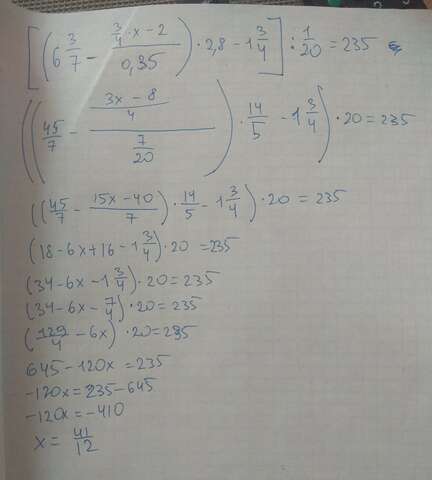 [(6 3/7 - (3/4 · x - 2)/0,35) · 2,8 - 1 3/4] : 1/20 = 235
((45/7 - ((3x - 8)/4)/(7/20)) · 14/5 - 1 3/4) · 20 = 235
((45/7 - (15x - 40)/7) · 14/5 - 1 3/4) · 20 = 235
(18 - 6x + 16 - 1 3/4) · 20 = 235
(34 - 6x - 1 3/4) · 20 = 235
(34 - 6x - 7/4) · 20 = 235
(129/4 - 6x) · 20 = 235
645 - 120x = 235
-120x = 235 - 645
-120x = -410
x = 41/12